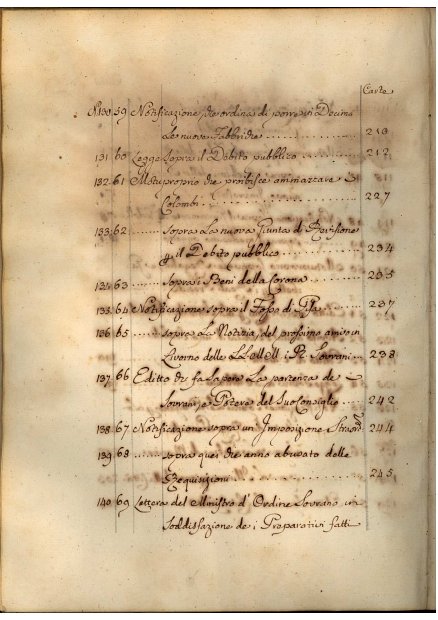 Carte
N.130 59 Notificazione, che ordina di porre in Decima
Le nuove Fabbriche .......... 210
131 60 Legge sopra il Debito pubblico ...... 212
132 61 Motuproprio che proibisce ammazzare i
Colombi .......... 227
133 62 ...... sopra La nuova Giunta di Revisione
p il Debito pubblico ...... 234
134 63 ...... sopra i Beni della Corona ... 235
135 64 Notificazione sopra il Fosso di Pisa ... 237
136 65 ...... sopra La Notizia, del prossimo arrivo in
Livorno delle LL. MM. i R. Sovrani ... 238
137 66 Editto che fa Sapere La partenza de i
Sovrani, e Potere del Suo Consiglio .... 242
138 67 Notificazione sopra un Imposizione Straord. 244
139 68 ...... sopra quei che anno abusato delle
Requisizioni .......... 245
140 69 Lettera del Ministro d' Ordine Sovrano in
Soddisfazione de i Preparativi fatti